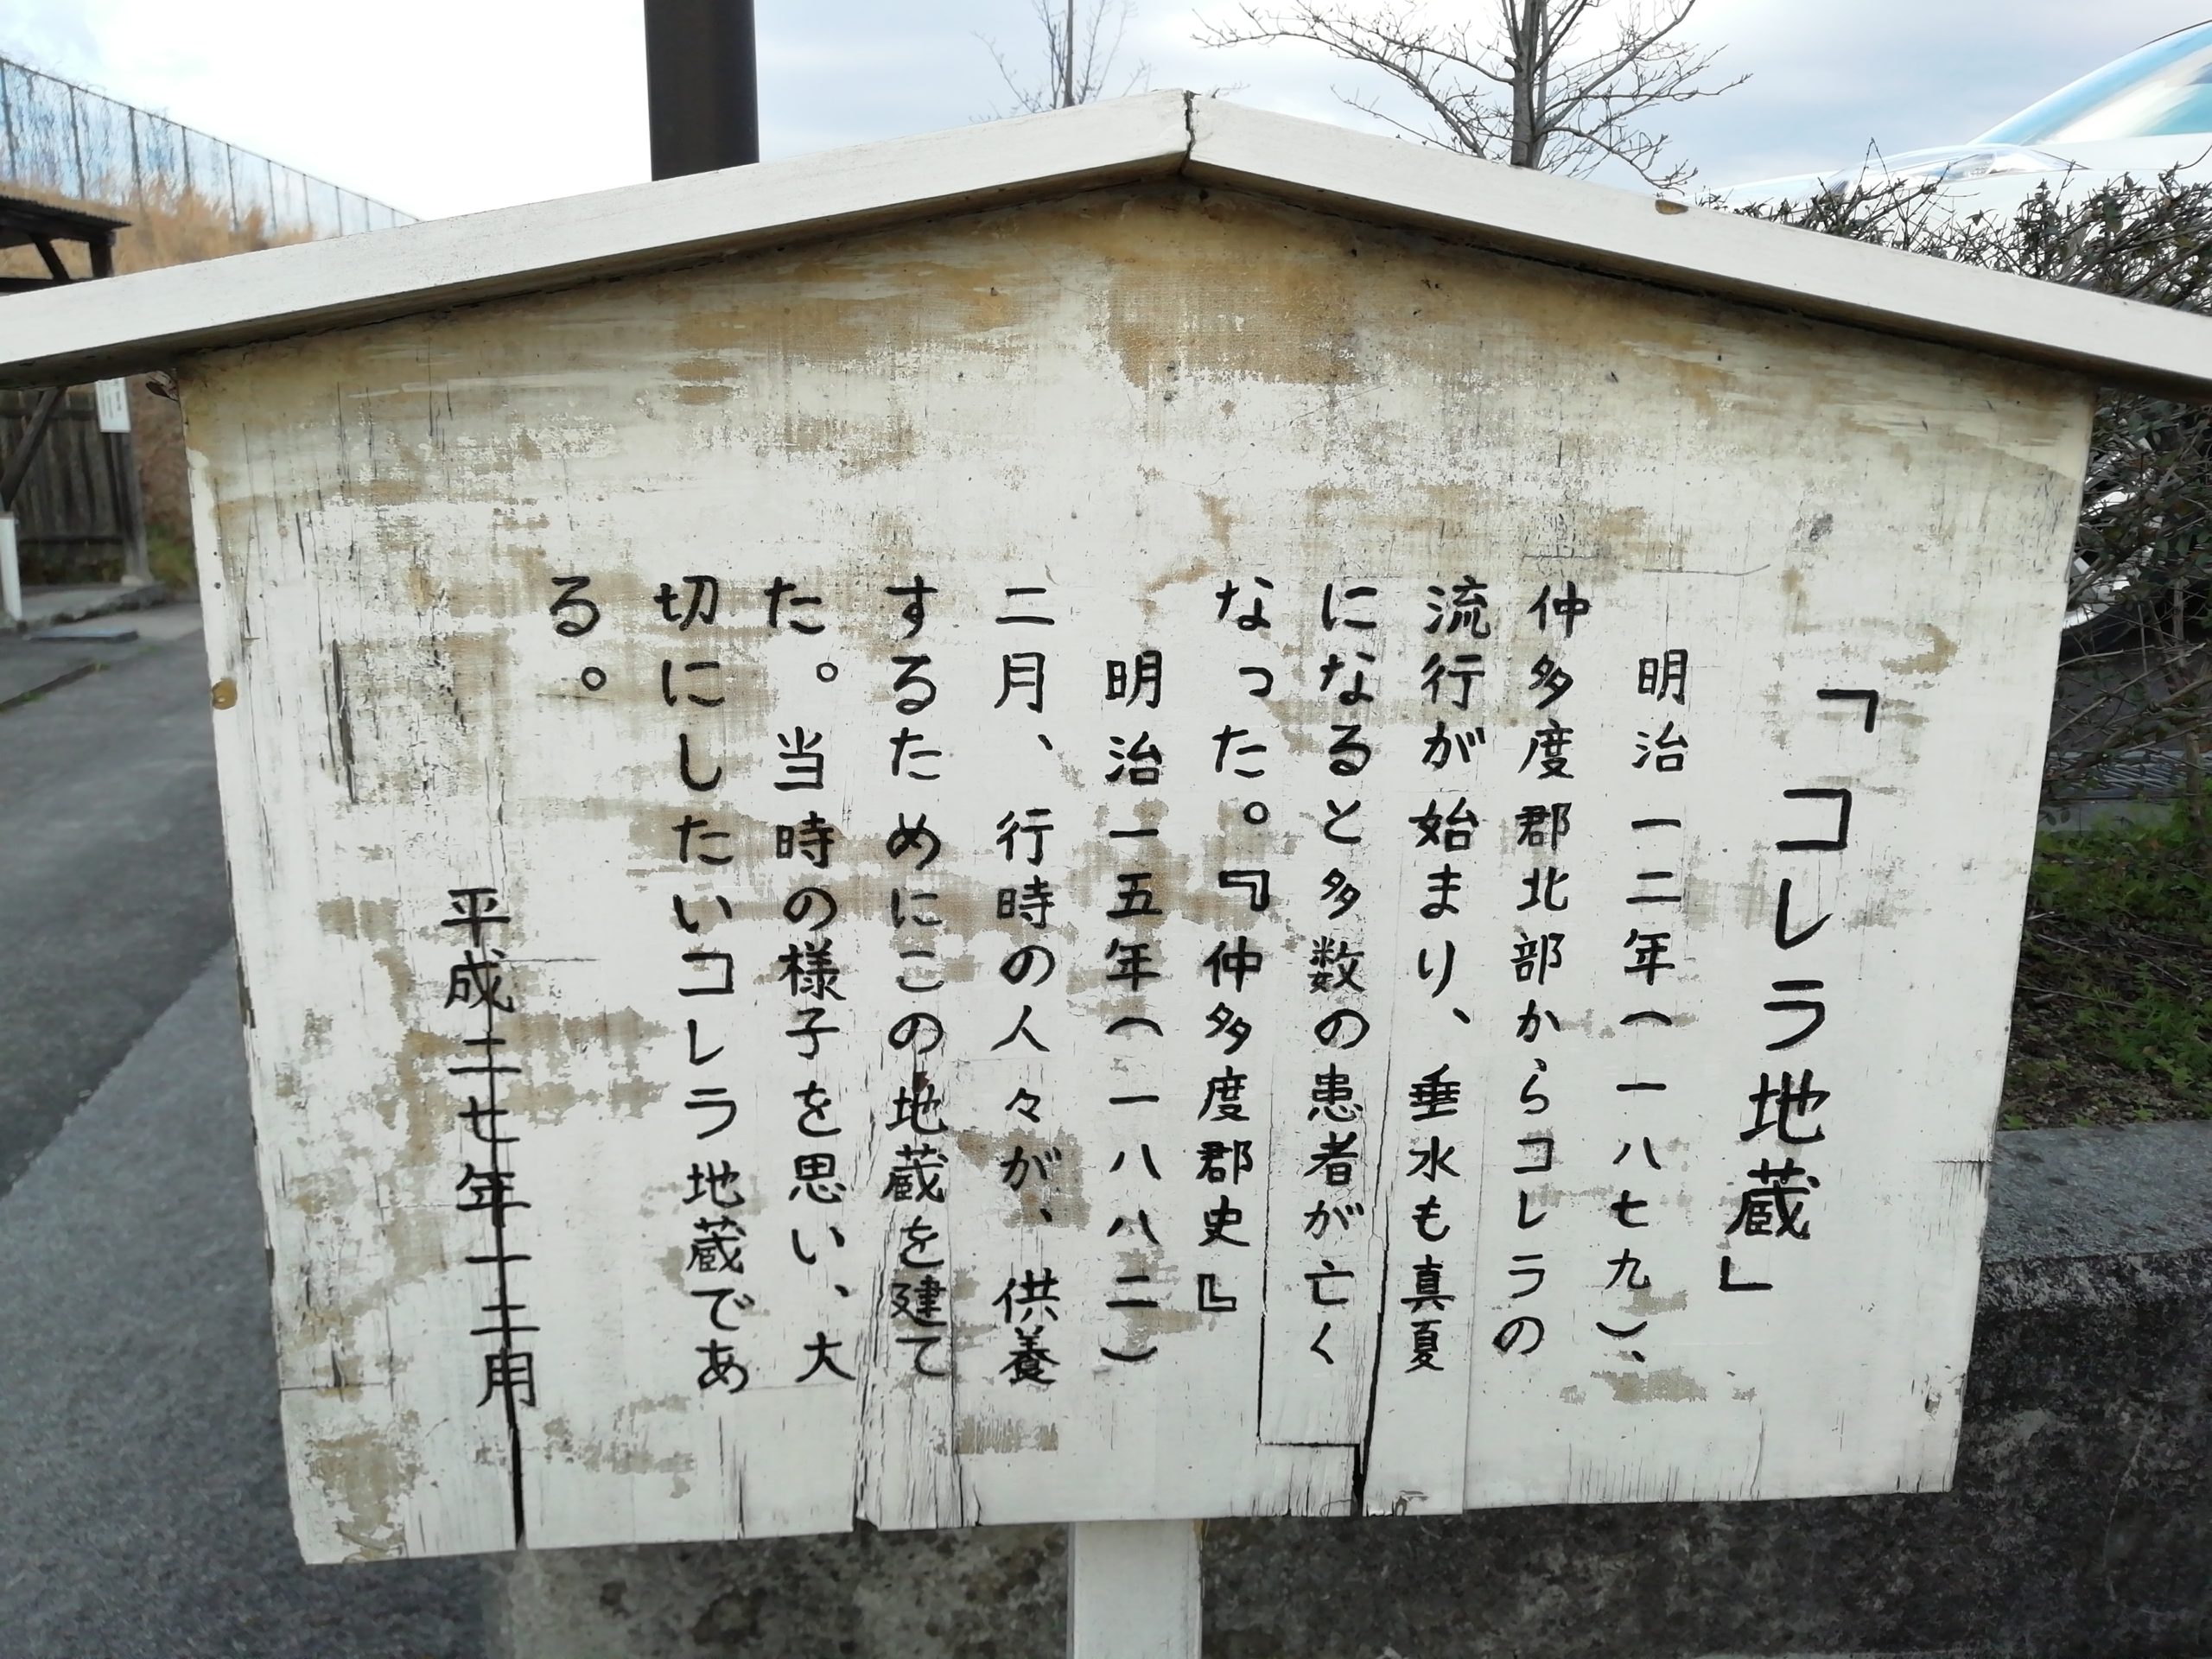 「コレラ地蔵」
明治一二年(一八七九)、
仲多度郡北部からコレラの
流行が始まり、垂水も真夏
になると多数の患者が亡く
なった。『仲多度郡史』
明治一五年(一八八二)
二月、行時の人々が、供養
するためにこの地蔵を建て
た。当時の様子を思い、大
切にしたいコレラ地蔵であ
る。
平成二七年一二月